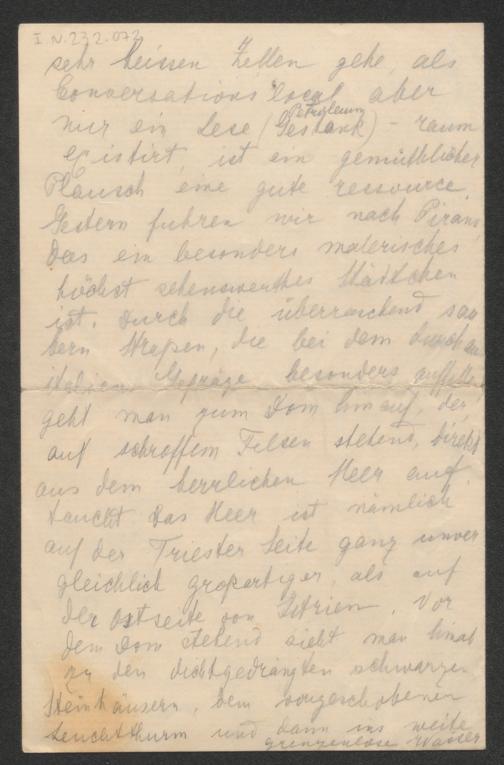 I.N.232.073
sehr heissen Zellen gehe, als
Conversations local aber
nur ein Lese (Petroleum
Gestank) - raum
existirt, ist ein gemüthlicher
Plausch eine gute ressource.
Gestern fuhren wir nach Pirano,
das ein besonders malerisches
höchst sehenswerthes Städtchen
ist. Durch die überraschend sau
bern Straßen, die bei dem durchaus
italien. Gepräge besonders auffallen,
geht man zum Dom hinauf, der,
auf schroffem Felsen stehend, direkt
aus dem herrlichen Meer auf
taucht. Das Meer ist nämlich
auf der Triester Seite ganz unver
gleichlich großartiger, als auf
der Ostseite von Istrien. Vor
dem Dom stehend sieht man hinab
zu den dichtgedrängten schwarzen
Steinhäusern, dem vorgeschobenen
Leuchtthurm und dann ins weite
grenzenlose Wasser